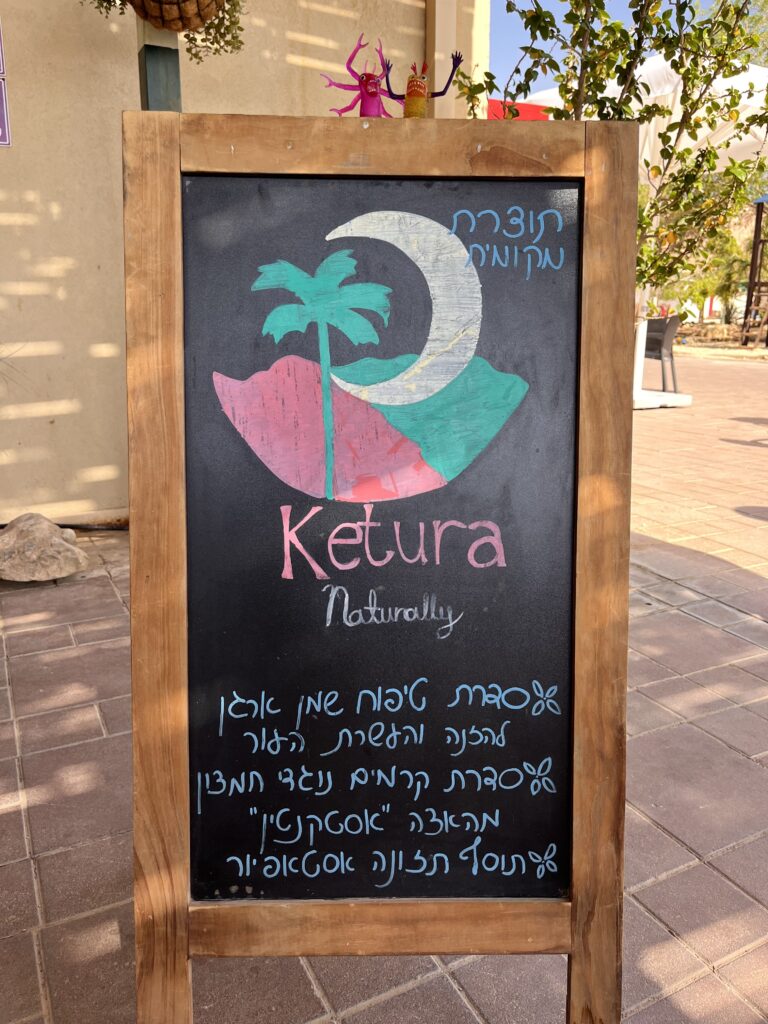 תוצרת
מקומית
Ketura
Naturally
סדרת טיפוח שמן ארגן
להזנה והעשרת העור
סדרת קרמים נוגדי חמצון
מהאצה "אסטקנטין"
תוסף תזונה אסטאפיור